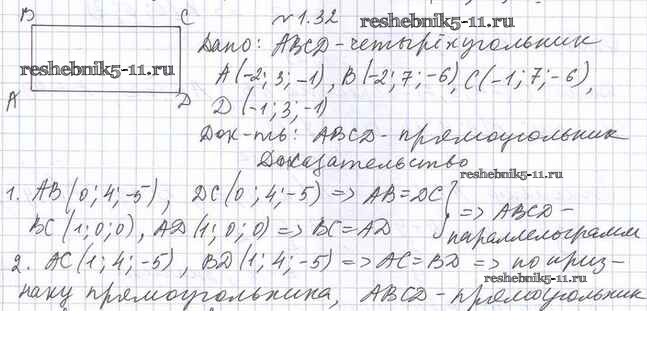 B C
№1.32
reshebnik5-11.ru
Дано: ABCD - четырёхугольник
reshebnik5-11.ru
A(-2; 3; -1), B(-2; 7; -6), C(-1; 7; -6),
A D
D(-1; 3; -1)
Док-ть: ABCD - прямоугольник
Доказательство
reshebnik5-11.ru
1. AB(0; 4; -5), DC(0; 4; -5) => AB = DC
BC(1; 0; 0), AD(1; 0; 0) => BC = AD } => ABCD -
параллелограмм
2. AC(1; 4; -5), BD(1; 4; -5) => AC = BD => по приз-
reshebnik5-11.ru
наку прямоугольника, ABCD - прямоугольник